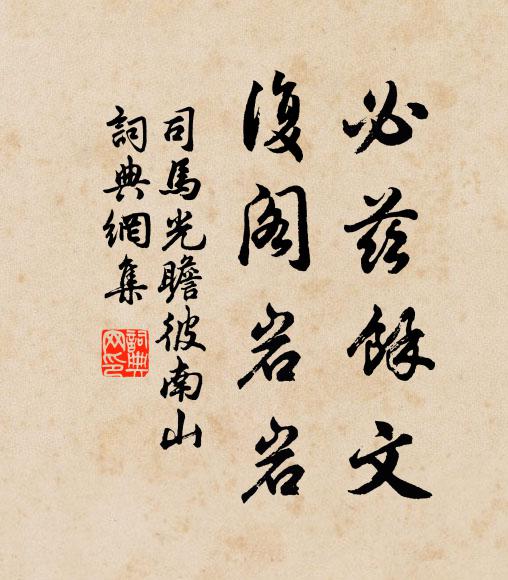 必茲餘文
復阁岩岩
司馬光瞻彼南山
詞典網集
詞典
网印